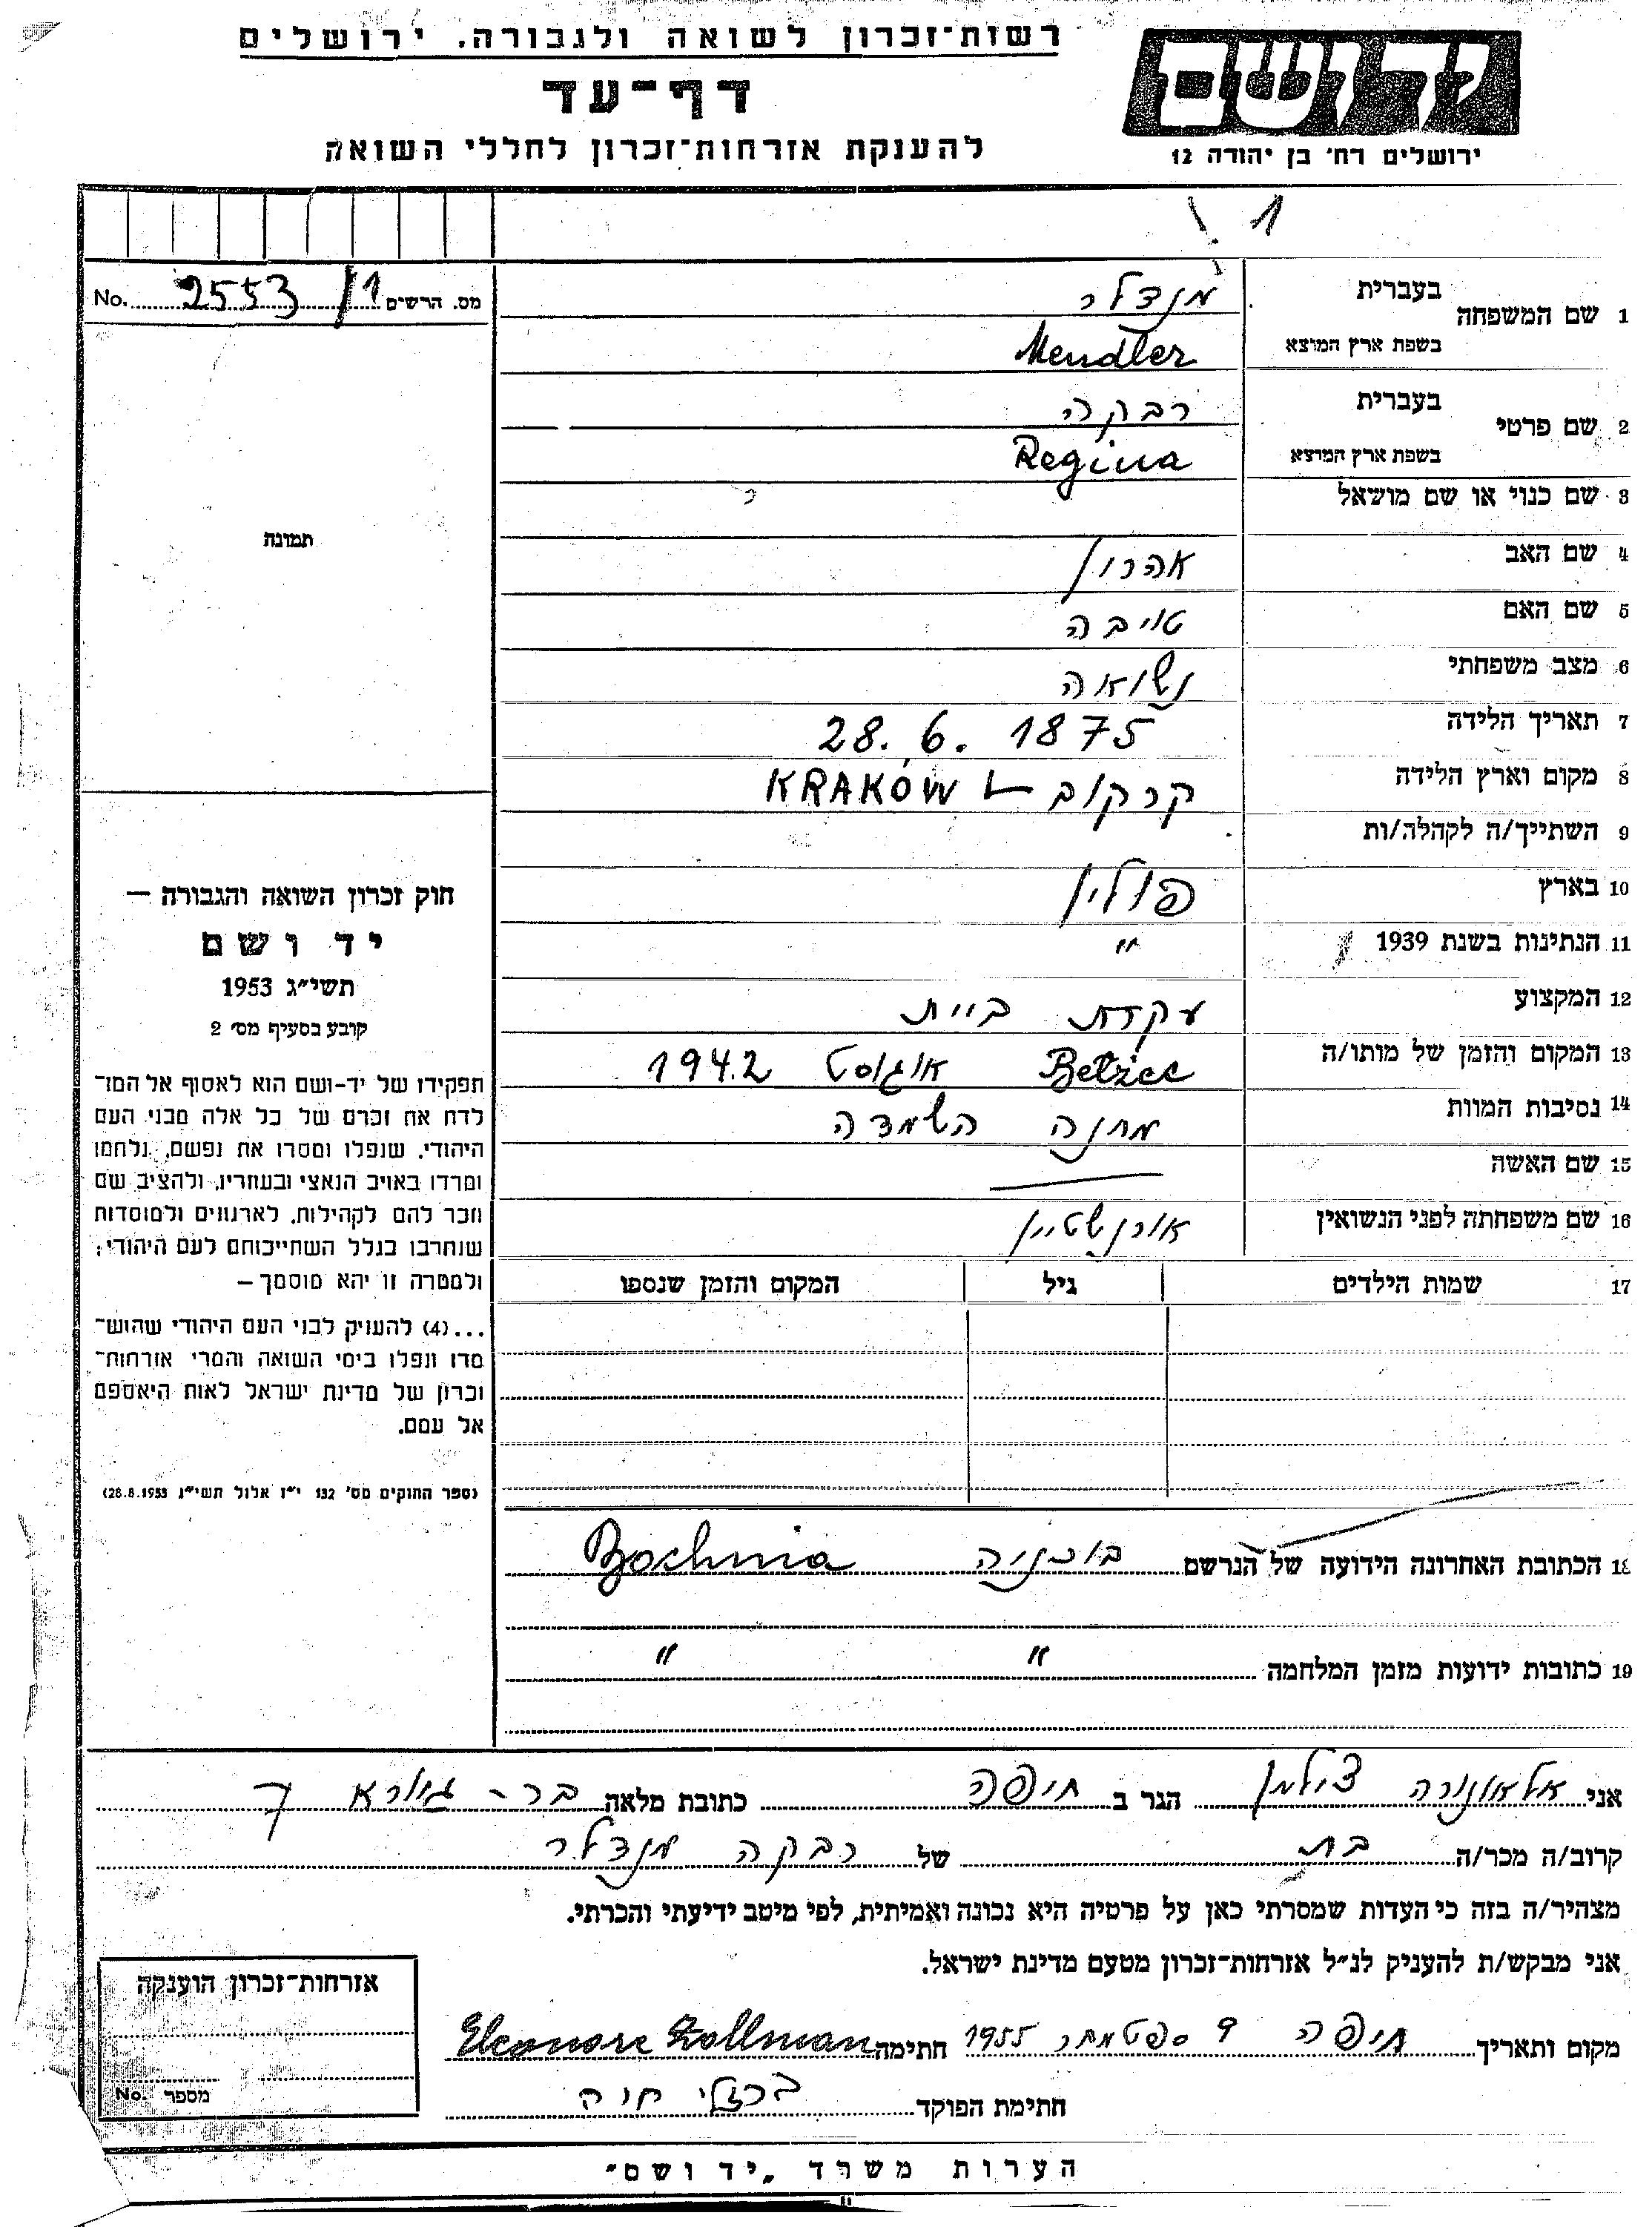 רשות־זכרון לשואה ולגבורה. ירושלים
דף־עד
להענקת אזרחות־זכרון לחללי השואה
יד ושם
ירושלים רח' בן יהודה 12
1
מס. הרשים 2553/1 No.
1 שם המשפחה בעברית מנדלר
בשפת ארץ המוצא Mendler
2 שם פרטי בעברית רבקה
בשפת ארץ המוצא Regina
3 שם כנוי או שם מושאל
4 שם האב אהרון
5 שם האם טויבה
6 מצב משפחתי נשואה
7 תאריך הלידה 28. 6. 1875
8 מקום וארץ הלידה קרקוב KRAKÓW
9 השתייך/ה לקהלה/ות
10 בארץ פולין
11 הנתינות בשנת 1939 "
12 המקצוע עקרת בית
13 המקום והזמן של מותו/ה Bełżec אוגוסט 1942
14 נסיבות המוות מחנה השמדה
15 שם האשה
16 שם משפחתה לפני הנשואין אורנשטיין
17 שמות הילדים גיל המקום והזמן שנספו
תמונה
חוק זכרון השואה והגבורה —
יד ושם
תשי"ג 1953
קובע בסעיף מס' 2
תפקידו של יד-ושם הוא לאסוף אל המו־
לדת את זכרם של כל אלה מבני העם
היהודי, שנפלו ומסרו את נפשם, נלחמו
ומרדו באויב הנאצי ובעוזריו, ולהציב שם
וזכר להם לקהילות, לארגונים ולמוסדות
שנחרבו בגלל השתייכותם לעם היהודי;
ולמטרה זו יהא מוסמך —
...(4) להעניק לבני העם היהודי שהוש־
מדו ונפלו בימי השואה והמרי אזרחות־
זכרון של מדינת ישראל לאות היאספם
אל עמם.
(ספר החוקים מס' 132 י"ז אלול תשי"ג 28.8.1953)
18 הכתובת האחרונה הידועה של הנרשם בוכניה Bochnia
19 כתובות ידועות מזמן המלחמה " "
אני אלאונורה צולמן הגר ב חיפה כתובת מלאה בר - גיורא 7
קרוב/ה מכר/ה בת של רבקה מנדלר
מצהיר/ה בזה כי העדות שמסרתי כאן על פרטיה היא נכונה ואמיתית, לפי מיטב ידיעתי והכרתי.
אני מבקש/ת להעניק לנ"ל אזרחות־זכרון מטעם מדינת ישראל.
מקום ותאריך חיפה 9 ספטמבר 1955 חתימה Eleonore Zollman
חתימת הפוקד ברזלי חיה
אזרחות־זכרון הוענקה
מספר No.
הערות משרד „יד ושם"